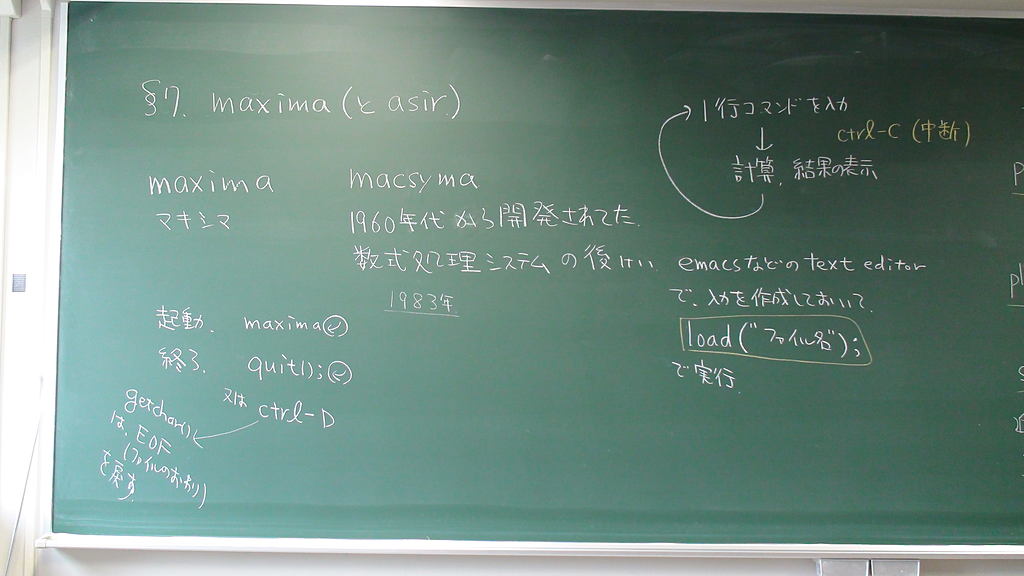 §7. maxima (と asir)
maxima
マキシマ
macsyma
1960年代から開発されてた
数式処理システムの後けい
1983年
起動. maxima
終了. quit();
又は ctrl-D
getchar()
は、EOF
(ファイルのおわり)
を戻す
1行コマンドを入力
↓
計算, 結果の表示
ctrl-C (中断)
emacsなどの text editor
で、入力を作成しておいて、
load("ファイル名");
で実行